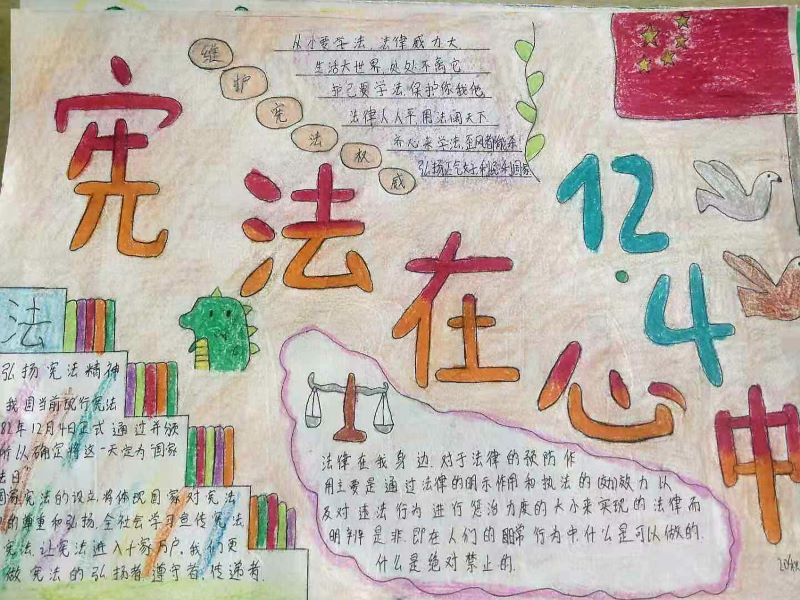 维护宪法权威
从小要学法,法律威力大
生活大世界,处处不离它
知己要学法保护你我他
法律人人平,用法闯天下
齐心来学法,歪风都能杀!
宪法在心中
12.4
法
弘扬宪法精神
我国当前现行宪法
82年12月4日正式通过并颁
所以确定将这一天定为国家
法日
国家宪法的设立将体现国家对宪法
的尊重和弘扬,全社会学习宣传宪法
宪法,让宪法进入千家万户,我们更
做宪法的弘扬者,遵守者,传递者.
法律在我身边,对于法律的预防作
用主要是通过法律的明示作用和执法的效力以
及对违法行为进行惩治力度的大小来实现的法律而
明辨是非,即在人们的日常行为中什么是可以做的.
什么是绝对禁止的.